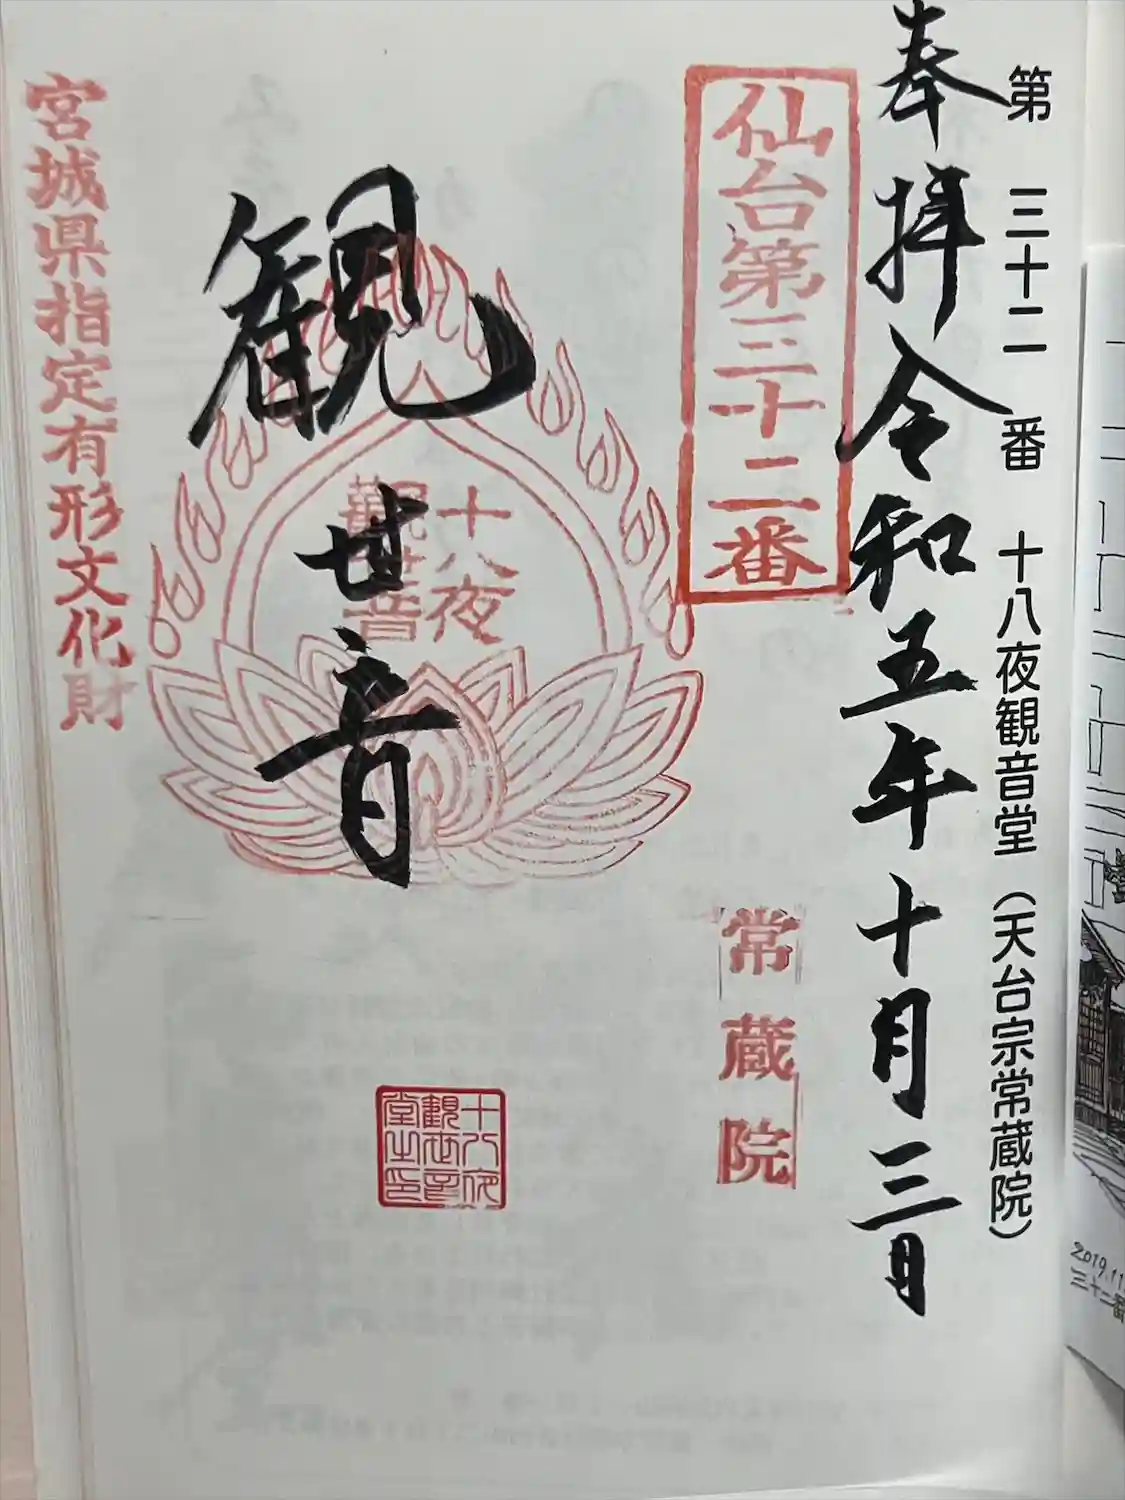 第三十二番 十八夜観音堂（天台宗常蔵院）
奉拝 令和五年十月三日
仙台第三十二番
常蔵院
観世音
十八夜
觀世音
十八夜
觀世音
堂之印
宮城県指定有形文化財
2019.11
三十二番